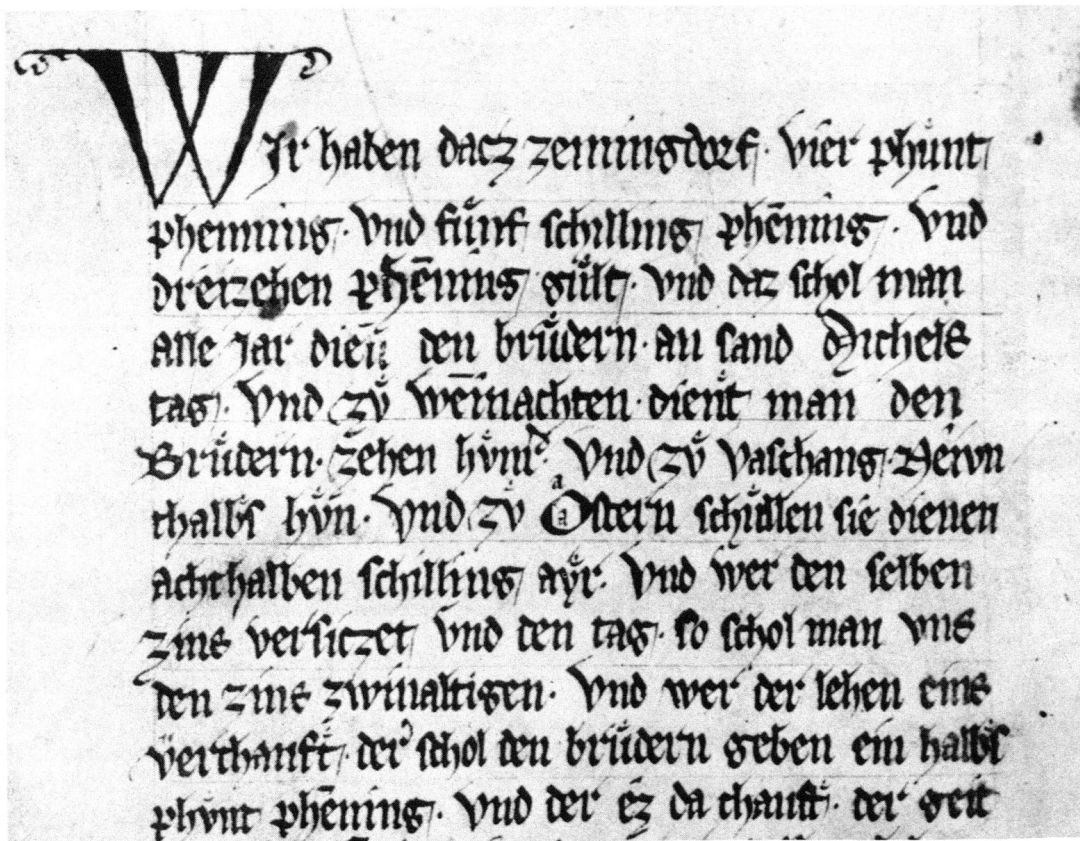 WIr haben datz zemingdorf · vier phunt
phenning · Vnd fůnf schilling phēning · Vnd
dreizehen phēning gůlt · vnd daz schol man
alle Jar dien̄ den brůdern · an sand Michels
tag · Vnd zů wēinachten · dient man den
Brůdern · zehen hůnr · Vnd zů vaschang · Newn
thalbs hůn · Vnd zů Ostern schůllen sie dienen
achthalben schilling ayr · Vnd wer den selben
zins versitzet vnd den tag · so schol man vns
den zins zwiualtigen · Vnd wer der lehen eins
verchauft · der schol den brůdern geben ein halbs
phunt phēning · Vnd der ez da chauft · der geit